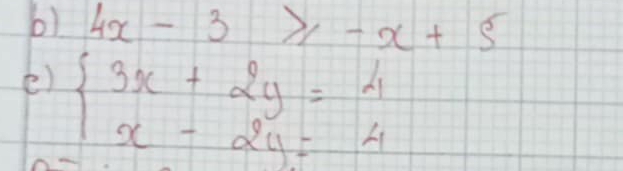 b) 4x - 3 ⩾ -x + 5
c) { 3x + 2y = 4
x - 2y = 4